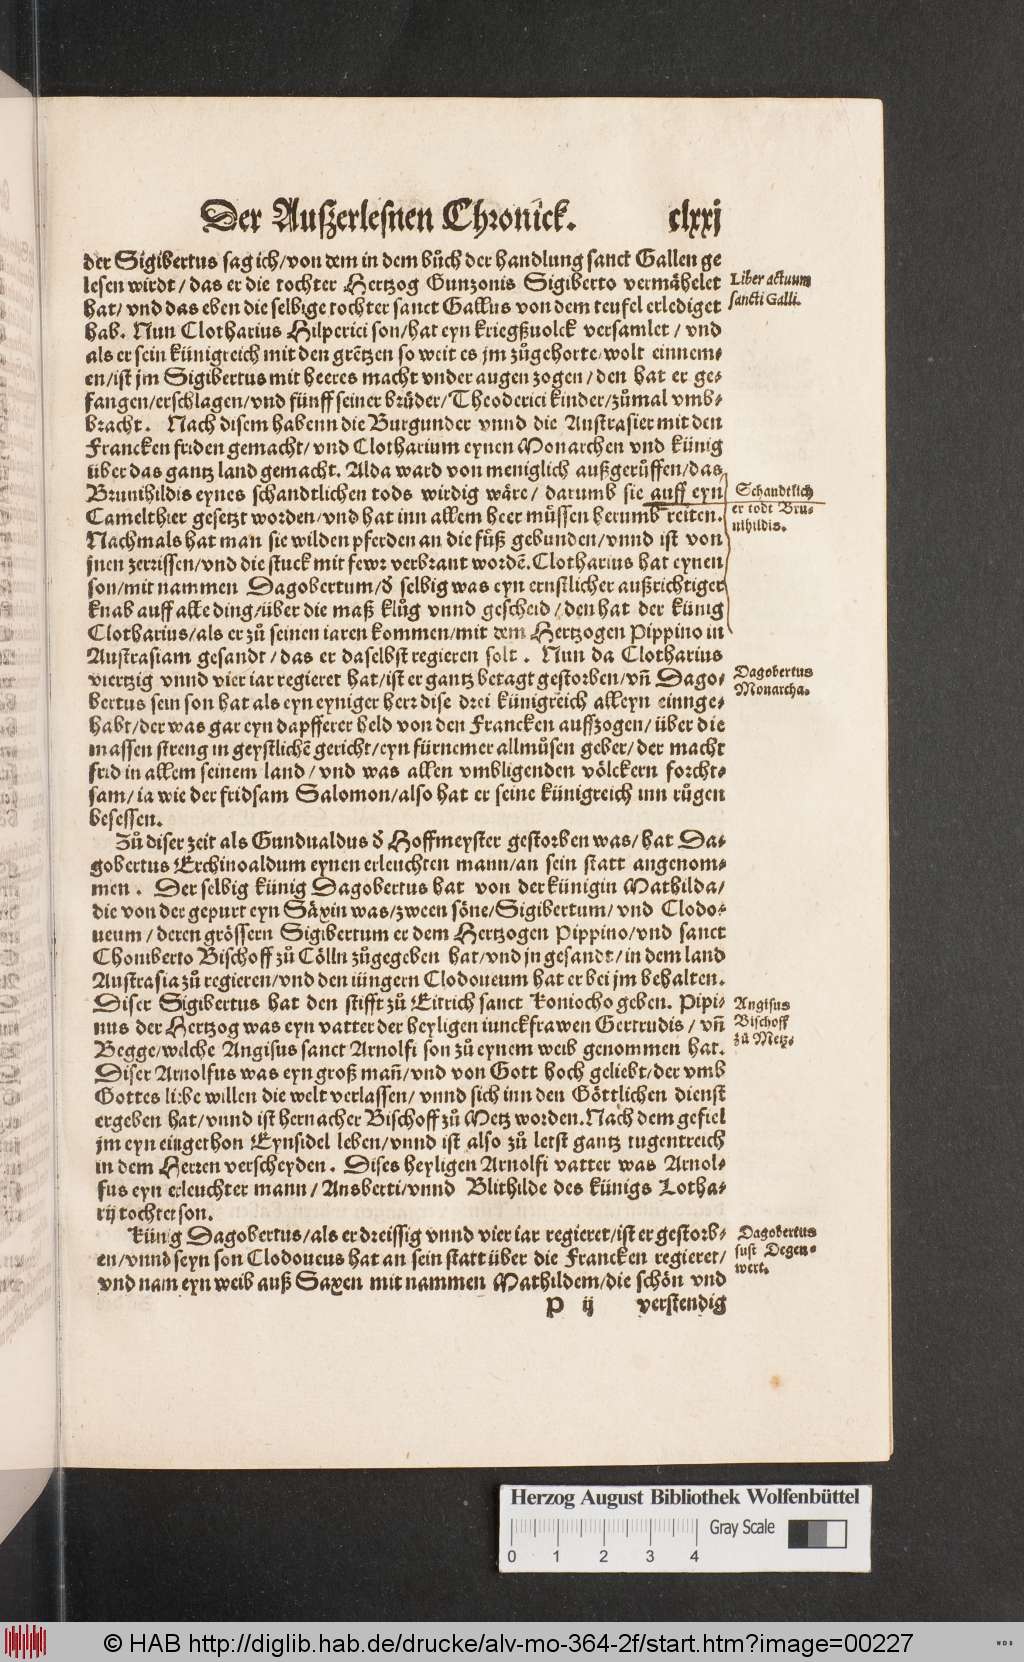 Der Auſzerleſnen Chronick. clxxj
der Sigibertus ſag ich/von dem in dem bůch der handlung ſanct Gallen ge
leſen wirdt/das er die tochter Hertzog Gunzonis Sigiberto vermähelet
hat/vnd das eben die ſelbige tochter ſanct Gallus von dem teufel erlediget
hab. Nun Clotharius Hilperici ſon/hat eyn kriegßuolck verſamlet/vnd
als er ſein künigreich mit den grētzen ſo weit es jm zůgehorte/wolt einnem⸗
en/iſt jm Sigibertus mit heeres macht vnder augen zogen/den hat er ge⸗
fangen/erſchlagen/vnd fünff ſeiner brůder/Theoderici kinder/zůmal vmb⸗
bracht. Nach diſem habenn die Burgunder vnnd die Auſtraſier mit den
Francken friden gemacht/vnd Clotharium eynen Monarchen vnd künig
über das gantz land gemacht. Alda ward von meniglich außgerůffen/das
Brunihildis eynes ſchandtlichen tods wirdig wäre/darumb ſie auff eyn
Camelthier geſetzt worden/vnd hat inn allem heer müſſen herumb reiten.
Nachmals hat man ſie wilden pferden an die füß gebunden/vnnd iſt von
jnen zerriſſen/vnd die ſtuck mit fewr verbrant wordē. Clotharius hat eynen
ſon/mit nammen Dagobertum/ď ſelbig was eyn ernſtlicher außrichtiger
knab auff alle ding/über die maß klůg vnnd geſcheid/den hat der künig
Clotharius/als er zů ſeinen iaren kommen/mit dem Hertzogen Pippino in
Auſtraſiam geſandt/das er daſelbſt regieren ſolt. Nun da Clotharius
viertzig vnnd vier iar regieret hat/iſt er gantz betagt geſtorben/vñ Dago⸗
bertus ſein ſon hat als eyn eyniger herr diſe drei künigreich alleyn einnge⸗
habt/der was gar eyn dapfferer held von den Francken auffzogen/über die
maſſen ſtreng in geyſtlichē gericht/eyn fürnemer allmůſen geber/der macht
frid in allem ſeinem land/vnd was allen vmbligenden völckern forcht⸗
ſam/ia wie der fridſam Salomon/alſo hat er ſeine künigreich inn růgen
beſeſſen.
Zů diſer zeit als Gundualdus ď Hoffmeyſter geſtorben was/hat Da⸗
gobertus Erchinoaldum eynen erleuchten mann/an ſein ſtatt angenom⸗
men. Der ſelbig künig Dagobertus hat von der künigin Mathilda/
die von der gepurt eyn Säxin was/zween ſöne/Sigibertum/vnd Clodo⸗
ueum/deren gröſſern Sigibertum er dem Hertzogen Pippino/vnd ſanct
Chomberto Biſchoff zů Cölln zůgegeben hat/vnd jn geſandt/in dem land
Auſtraſia zů regieren/vnd den iüngern Clodoueum hat er bei jm behalten.
Diſer Sigibertus hat den ſtifft zů Eitrich ſanct Koniocho geben. Pipi⸗
nus der Hertzog was eyn vatter der heyligen iunckfrawen Gertrudis/vñ
Begge/welche Angiſus ſanct Arnolfi ſon zů eynem weib genommen hat.
Diſer Arnolfus was eyn groß mañ/vnd von Gott hoch geliebt/der vmb
Gottes liebe willen die welt verlaſſen/vnnd ſich inn den Göttlichen dienſt
ergeben hat/vnnd iſt hernacher Biſchoff zů Metz worden. Nach dem gefiel
jm eyn eingethon Eynſidel leben/vnnd iſt alſo zů letſt gantz tugentreich
in dem Herren verſcheyden. Diſes heyligen Arnolfi vatter was Arnol⸗
fus eyn erleuchter mann/Ansberti/vnnd Blithilde des künigs Lotha⸗
rij tochter ſon.
Künig Dagobertus/als er dreiſſig vnnd vier iar regieret/iſt er geſtorb⸗
en/vnnd ſeyn ſon Clodoueus hat an ſein ſtatt über die Francken regieret/
vnd nam eyn weib auß Saxen mit nammen Mathildem/die ſchön vnd
P ij verſtendig
Liber actuum
ſancti Galli.
Schandtlich
er todt Bru⸗
nihildis.
Dagobertus
Monarcha.
Angiſus
Biſchoff
zů Metz.
Dagobertus
ſuſt Degen⸗
wert.
Herzog August Bibliothek Wolfenbüttel
Gray Scale
0 1 2 3 4
© HAB http://diglib.hab.de/drucke/alv-mo-364-2f/start.htm?image=00227